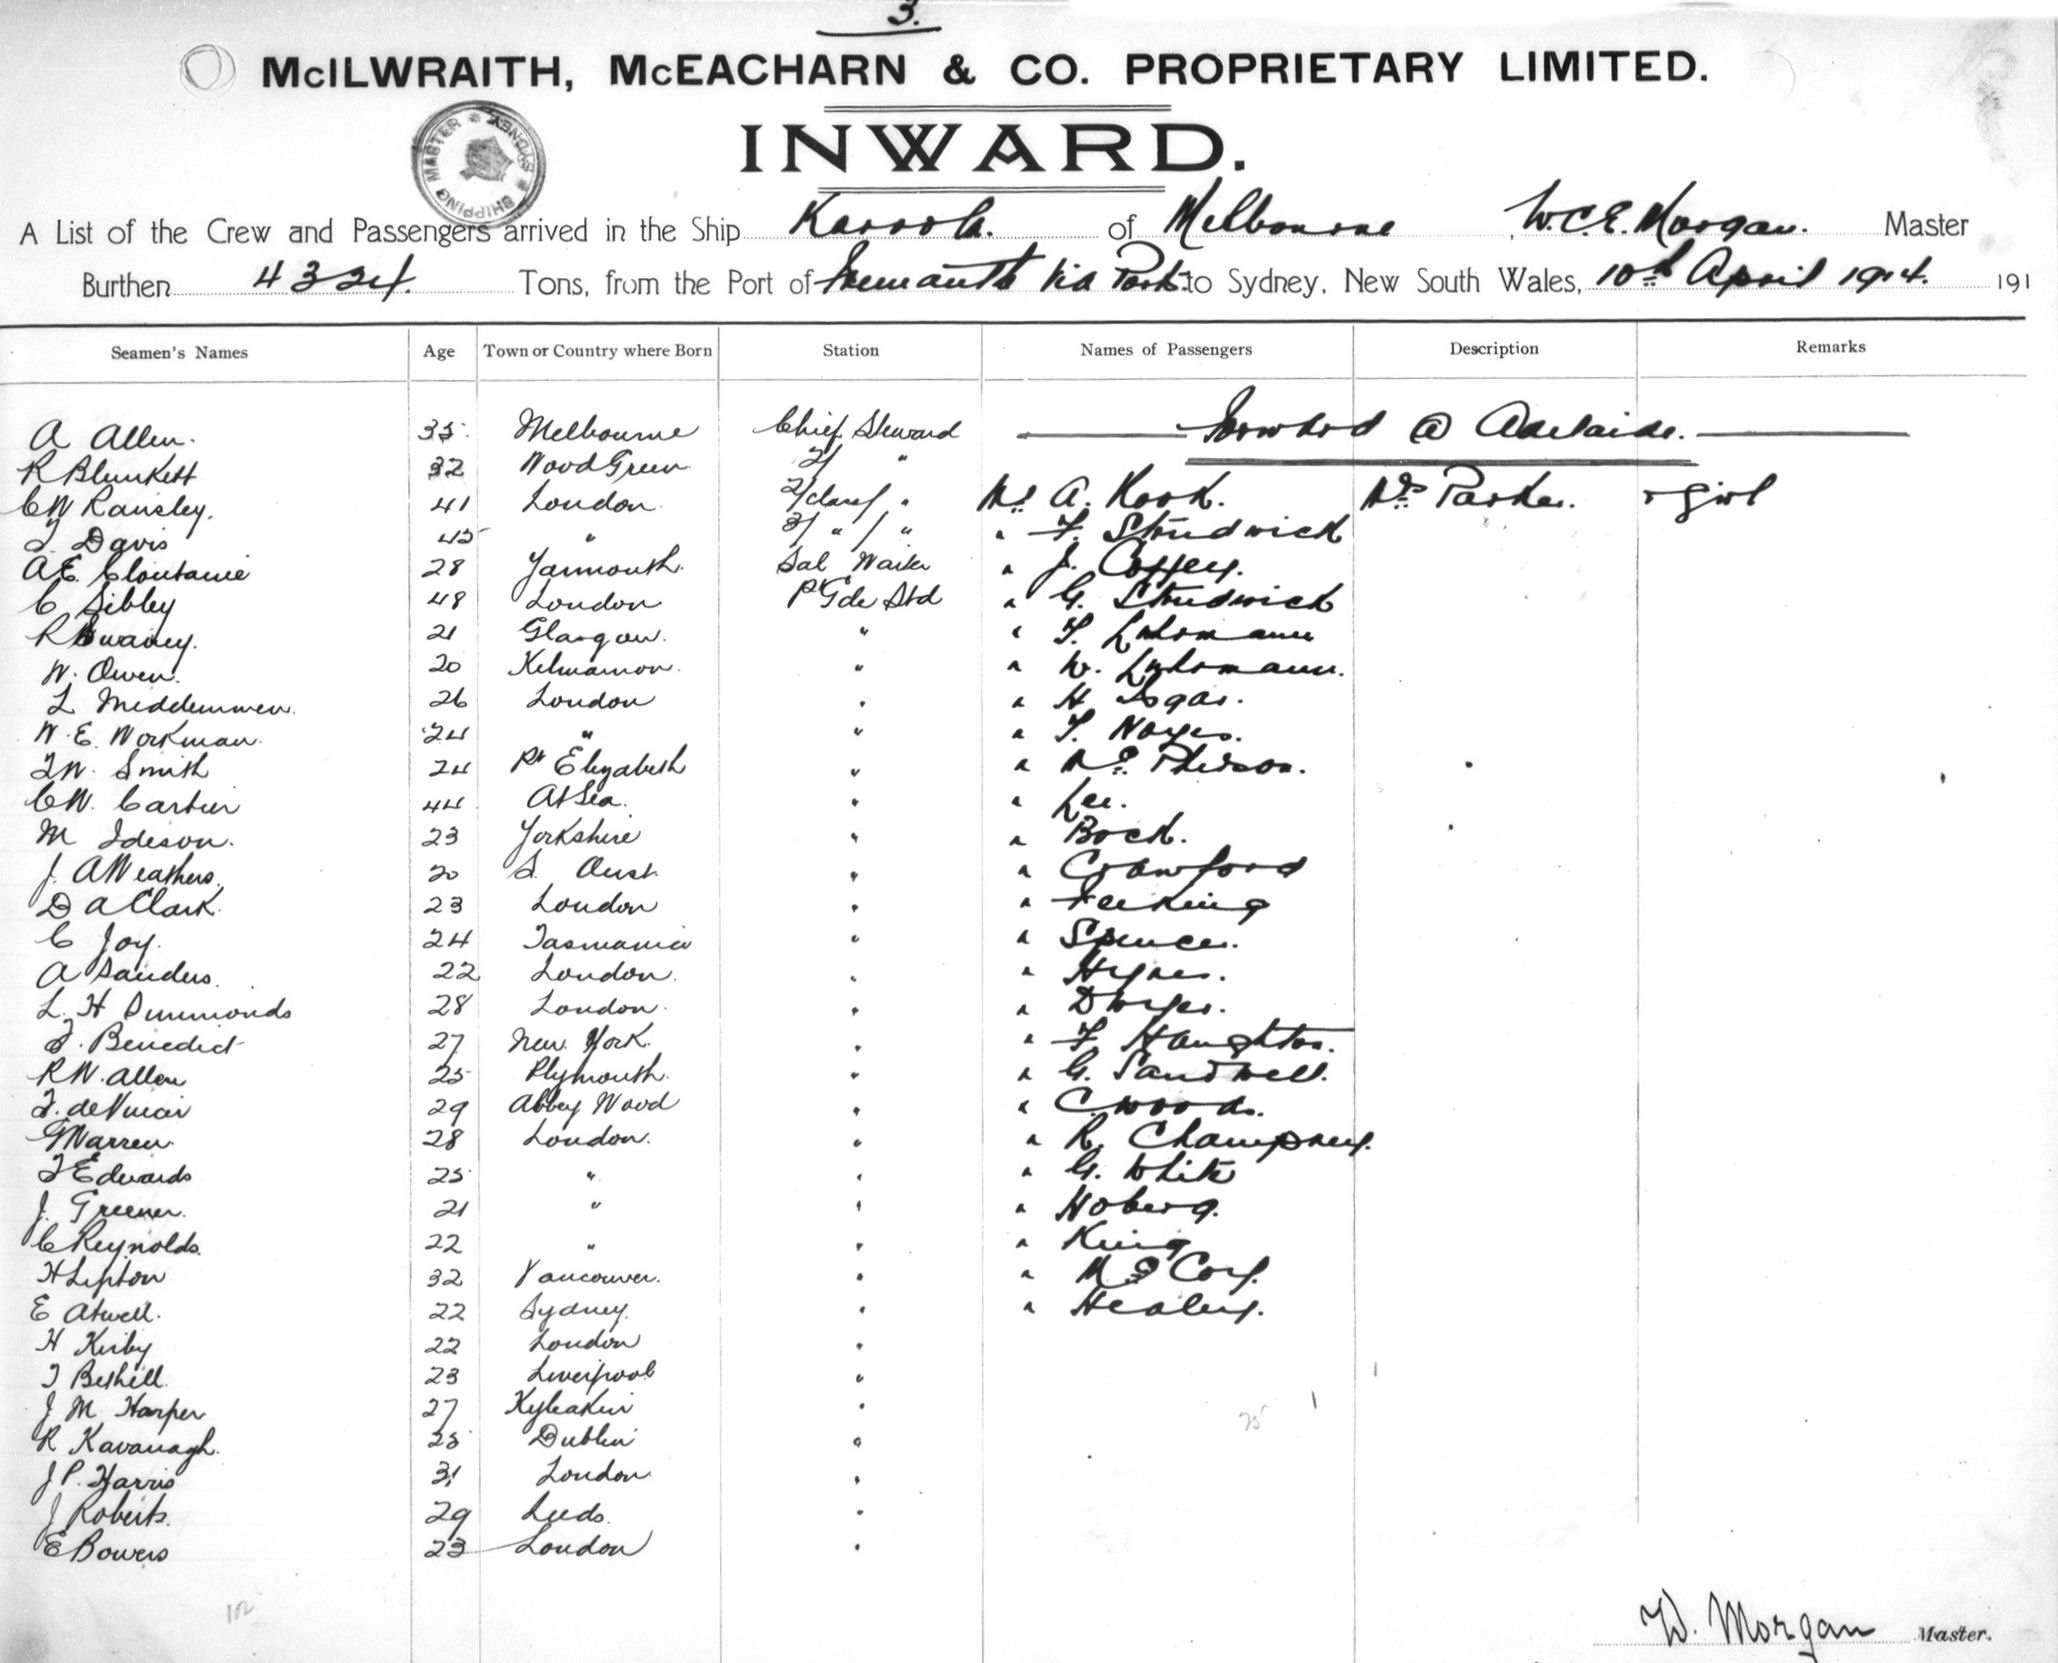 3.
McILWRAITH, McEACHARN & CO. PROPRIETARY LIMITED.
SHIPPING MASTER * SYDNEY *
INWARD.
A List of the Crew and Passengers arrived in the Ship Karoola. of Melbourne, W.C.E. Morgan. Master
Burthen 4324. Tons, from the Port of Fremantle via Ports to Sydney, New South Wales, 10th April 1914. 191
Seamen's Names Age Town or Country where Born Station Names of Passengers Description Remarks
A Allen. 35 Melbourne Chief Steward Forward @ Adelaide.
R Blunkett 32 Wood Green 2/ "
C W Ransley. 41 London 2/class/ " Mr A. Kook. Mrs Parker. + girl
T. Davis 45 " 3/ " / " " F. Studwick
A.E. 28 Yarmouth. Sal Waiter " J. Coffey.
C Sibley 48 London P Gde Std " G. Studwick
R Swaney. 21 Glasgow. " " T. Luhsmann
W. Owen. 20 Kilmarnon. " " W. Luhsmann.
L Middlemmen. 26 London " " H
W. E. Workman. 24 " " " T. Noyes.
T W. Smith 24 Pt Elizabeth " " McPherson.
C W. Carbier 44 At Sea. " " Lee.
M Ideson. 23 Yorkshire " " Bock.
J. A Weathers. 20 S. Aust. " " Crawford
D A Clark. 23 London " "
C Joy. 24 Tasmania " " Spencer.
A Sanders. 22 London. " " Hynes.
L. H Simmonds 28 London. " " Dwyer.
T. Benedict 27 New York. " " F. Haughton.
R W. Allen 25 Plymouth. " " G. Sandwell.
T. de 29 Abbey Wood " " C. Woods.
G Warren 28 London. " " R. Champney.
T Edwards 25 " " " G. White
J. Greener. 21 " " " Hoberg.
C Reynolds. 22 " " " King
H Lipton 32 Vancouver. " " McCoy.
E Atwell. 22 Sydney. " " Healey.
H Kirby 22 London "
T Bethell. 23 Liverpool "
J M Harper 27 Kyleakin "
R Kavanagh. 25 Dublin "
J P. Harris 31 London "
J Roberts. 29 Leeds. "
E Bowers 23 London "
W. Morgan Master.